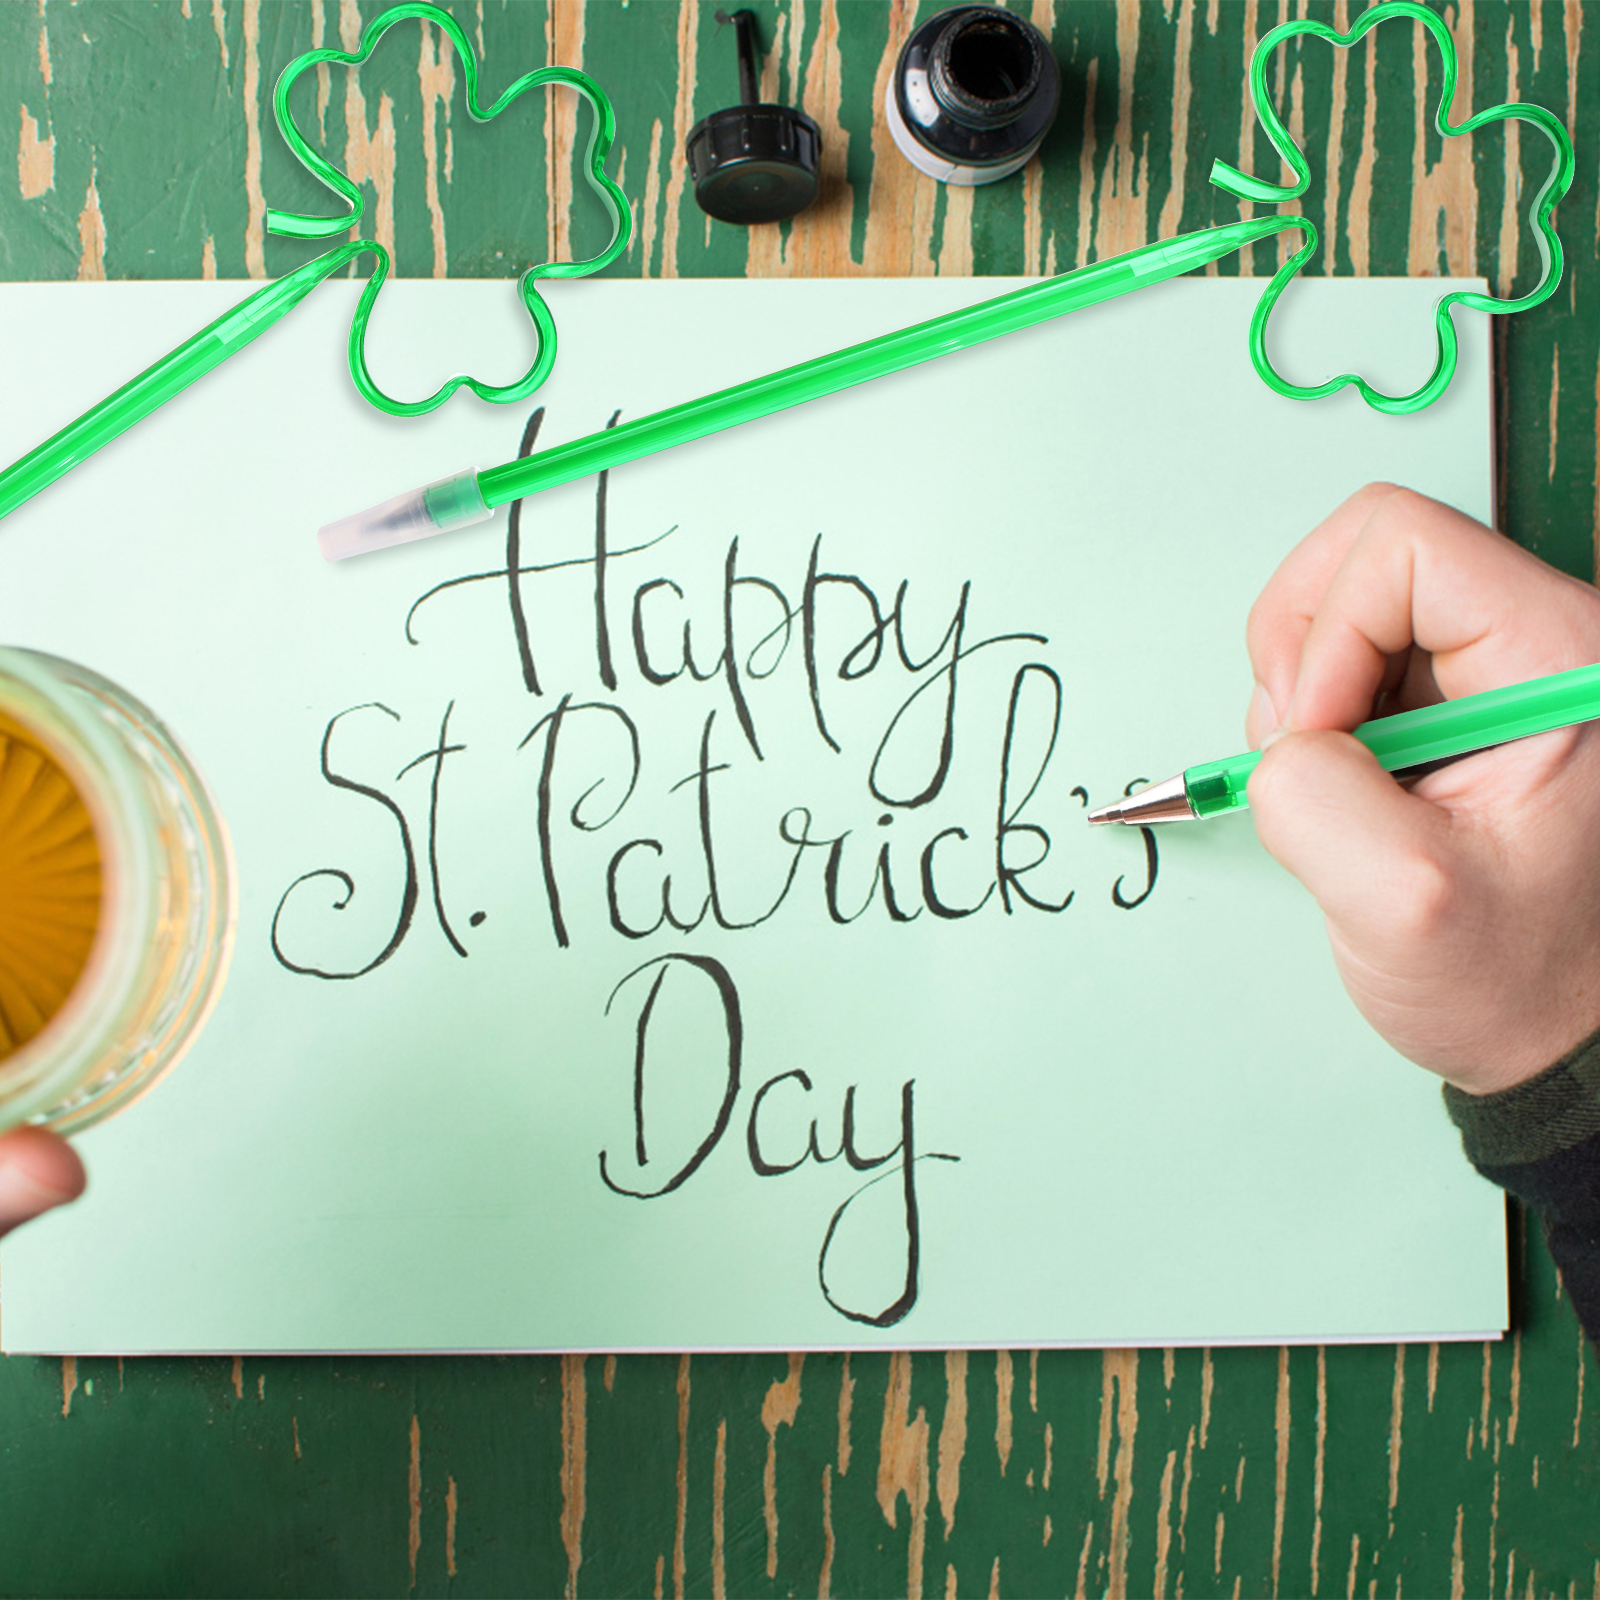 Happy
St. Patrick's
Day